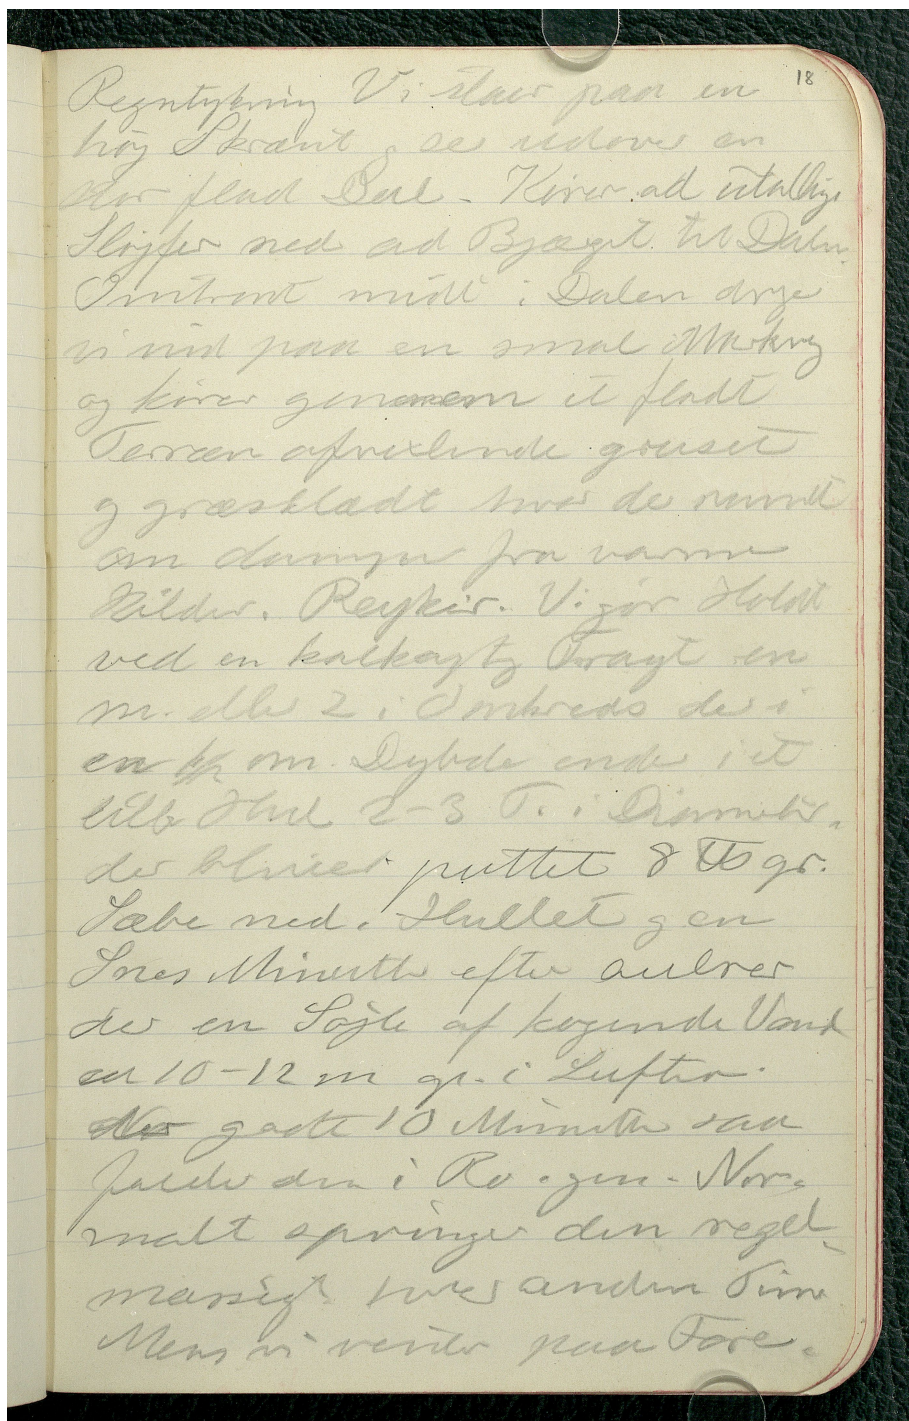 18
Regntykning Vi staar paa en
høj Skrænt, se udover en
stor flad Dal. Kører ad utallige
Sløjfer ned ad Bjærget til Dalen.
Omtrent midt i Dalen dreje
vi ind paa en smal Markvej
og kører gennem et fladt
Terræn afvexlende gruset
og græsklædt hvor de rundt
om damper fra varme
Kilder. Reykir. Vi gør Holdt
ved en kalkagtig Tragt en
m. eller 2 i Omkreds der i
en m. Dybde ender i et
lille Hul 2-3 T. i Diameter.
der bliver puttet 8 gr.
Sæbe ned i Hullet og en
Snes Minutter efter
der en Søjle af kogende Vand
10-12 m op i Luften.
godt 10 Minutter saa
falder den i Ro igen. Nor-
malt springer den regel-
mæssigt hver anden Time
Mens vi venter paa Fore-